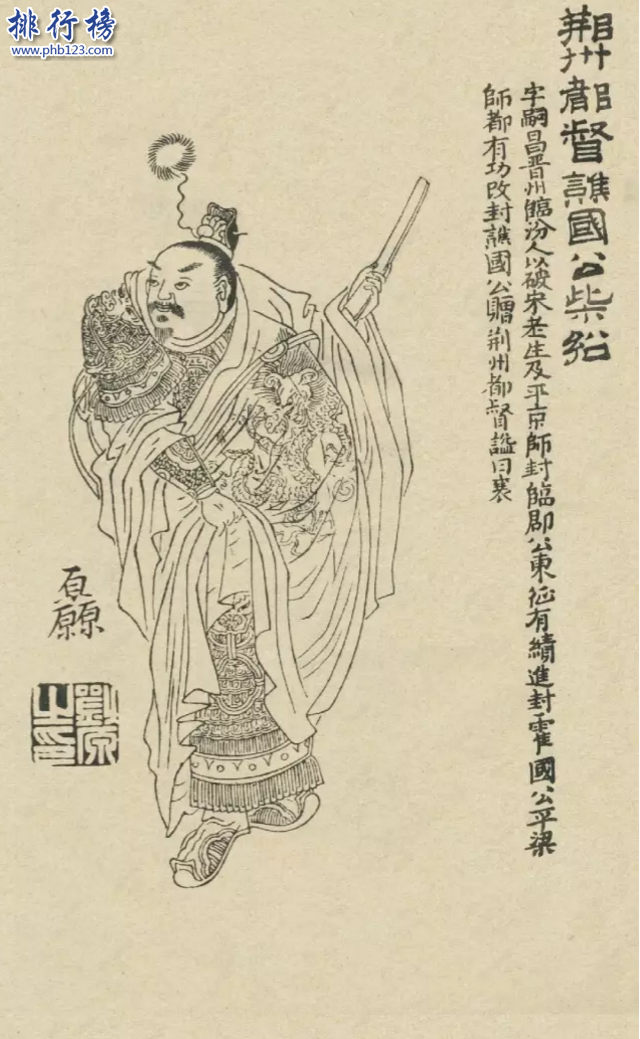 排行榜
www.phb123.com
荊州都督譙國公柴紹
字嗣昌晋州臨汾人以破宋老生及平京師封臨郡公東征有績進封霍國公平梁
師都有功改封譙國公贈荆州都督謚曰襄
劉源
之印